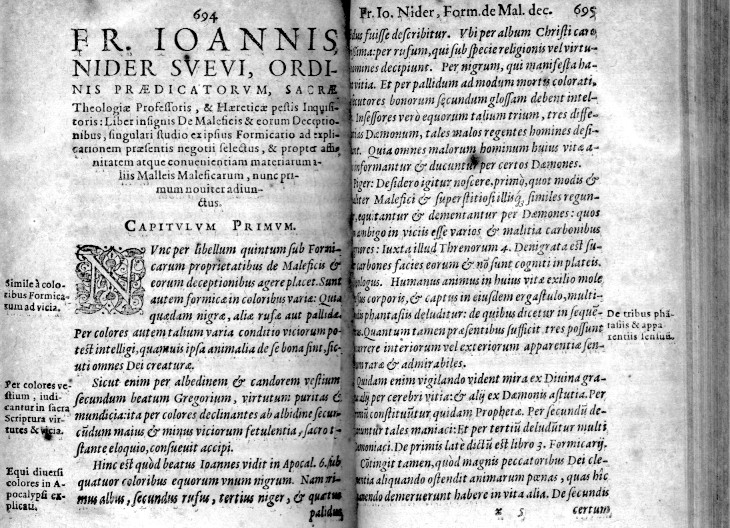 694
FR. IOANNIS
NIDER SVEVI, ORDI-
NIS PRÆDICATORVM, SACRÆ
Theologiæ Professoris, & Hæreticæ pestis Inquisi-
toris: Liber insignis De Maleficis & eorum Deceptio
nibus, singulari studio ex ipsius Formicario ad expli-
cationem præsentis negotii selectus, & propter affi-
nitatem atque convenientiam materiarum a-
liis Malleis Maleficarum, nunc pri-
mum noviter adiun-
ctus.
CAPITVLVM PRIMVM.
NVnc per libellum quintum sub Formi-
carum proprietatibus de Maleficis &
eorum deceptionibus agere placet. Sunt
autem formicæ in coloribus variæ: Quia
quædam nigræ, aliæ rufæ aut pallidæ
Per colores autem talium varia conditio viciorum po-
test intelligi, quamuis ipsa animalia de se bona sint, sic-
uti omnes Dei creaturæ.
Sicut enim per albedinem & candorem vestium
secundum beatum Gregorium, virtutum puritas &
munditia: ita per colores declinantes ab albidine secun-
cūdum maius & minus viciorum fetulentia, sacro te-
stante eloquio, consueuit accipi.
Hinc est quòd beatus Ioannes vidit in Apocal. 6. sub
quatuor coloribus equorum vnum nigrum. Nam pri-
mus albus, secundus rufus, tertius niger, & quartus
palidus
Simile à colo-
ribus Formica-
rum ad vicia.
Per colores ve-
stium, indi-
cantur in sacra
Scriptura vir-
tutes & vicia.
Equi diuersi
colores in A-
pocalypsi ex-
plicati.
Fr. Io. Nider, Form. de Mal. dec. 695
dus fuisse describitur. Vbi per album Christi caro
sima: per rufum, qui sub specie religionis vel virtu-
omines decipiunt. Per nigrum, qui manifesta ha-
vitia. Et per pallidum ad modum mortis colorati,
cutores bonorum secundum glossam debent intel-
. Insessores verò equorum talium trium, tres diffe-
as Dæmonum, tales malos regentes homines desi-
nt. Quia omnes malorum hominum huius vitæ a-
nformantur & ducuntur per certos Dæmones.
Piger: Desidero igitur noscere, primò, quot modis &
liter Malefici & superstitiosi illusiq́, similes regun-
equitantur & dementantur per Dæmones: quos
ambigo in viciis esse varios & malitia carbonibus
iores: Iuxta illud Threnorum 4. Denigrata est su-
carbones facies eorum & nō sunt cogniti in plateis.
ologus. Humanus animus in huius vitæ exilio mole
us corporis, & captus in eiusdem ergastulo, multi-
phantasiis deluditur: de quibus dicetur in seque-
Quantum tamen præsentibus sufficit, tres possunt
rrere interiorum vel exteriorum apparentiæ sen-
raræ & admirabiles.
Quidam enim vigilando vident mira ex Diuina gra-
alij per cerebri vitia: & alij ex Dæmonis astutia. Per
mū constituūtur quidam Prophetæ. Per secundū de-
untur tales maniaci: Et per tertiū deludūtur multi
moniaci. De primis latè dictū est libro 3. Formicarij.
Cōtingit tamen, quòd magnis peccatoribus Dei cle-
entia aliquando ostendit animarum pœnas, quas hîc
uendo demeruerunt habere in vita alia. De secundis
x 5 certum
De tribus phā-
tasiis & appa
rentiis sensuū.